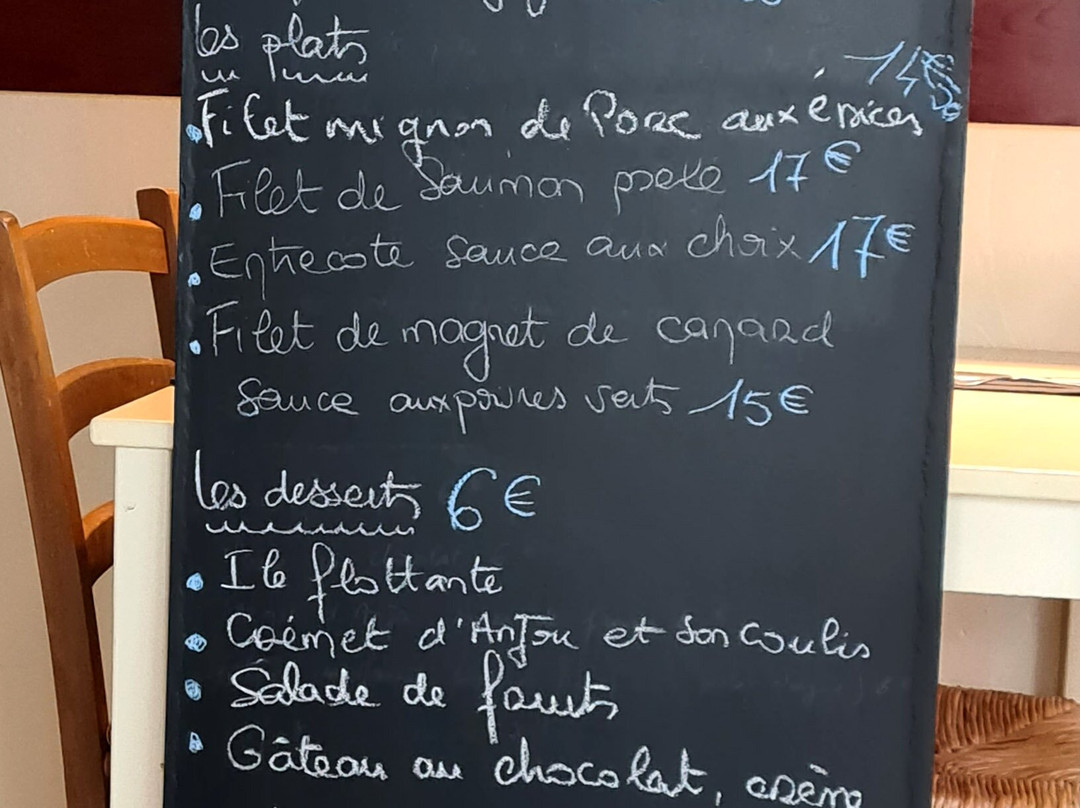 les plats
14€50
Filet mignon de Porc aux épices
Filet de Saumon poelé 17€
Entrecote sauce aux choix 17€
Filet de magret de canard
sauce aux poivres verts 15€
Les desserts 6€
Ile flottante
Crémet d'Anjou et son coulis
Salade de fruits
Gâteau au chocolat, crème